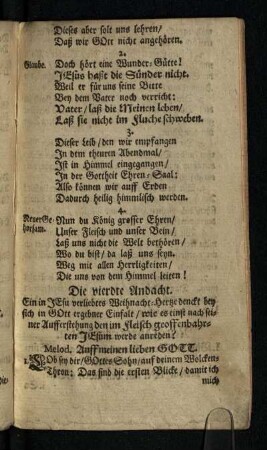 Dieses aber solt uns lehren/
Daß wir GOtt nicht angehören.
2.
Glaube. Doch hört eine Wunder-Gütte!
JEsus hasst die Sünder nicht.
Weil er für uns seine Bette
Bey dem Vater noch verricht:
Vater/ laß die Meinen leben/
Laß sie nicht im Fluche schweben.
3.
Dieser Leib/ den wir empfangen
In dem theuren Abendmal/
Ist in Himmel eingegangen/
In der Gottheit Ehren-Saal:
Also können wir auff Erden
Dadurch heilig himmlisch werden.
4.
Neuer Gehorsam. Nun du König grosser Ehren/
Unser Fleisch und unser Bein/
Laß uns nicht die Welt bethören/
Wo du bist/ da laß uns seyn.
Weg mit allen Herrligkeiten/
Die uns von dem Himmel leiten!
Die vierdte Andacht.
Ein in JEsu verliebtes Weihnacht-Hertze denckt bey
sich in GOtt ergebner Einfalt/ wie es einst nach sei-
ner Aufferstehung den im Fleisch geoffenbahrten
JEsum werde ansehen?
Melod. Auff meinen lieben GOTT.
1. LOb sey dir/ GOttes Sohn/ auf deinem Wolcken-
Thron: Das sind die ersten Blicke/ damit ich
mich